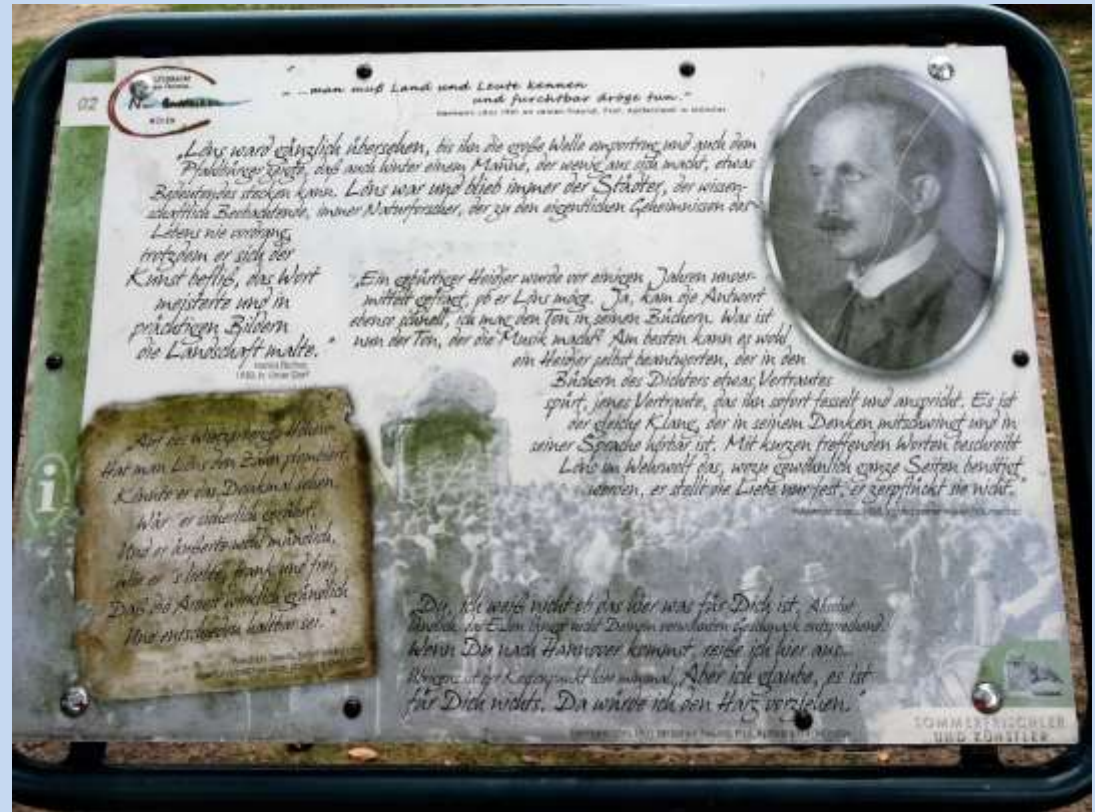 02
"...man muß Land und Leute kennen
und furchtbar dröge tun."
„Löns ward gänzlich übersehen, bis ihn die große Welle emportrug und auch dem
Pfahlbürger zeigte, daß auch hinter einem Manne, der wenig aus sich macht, etwas
Bedeutendes stecken kann. Löns war und blieb immer der Städter, der wissen-
schaftlich Beobachtende, immer Naturforscher, der zu den eigentlichen Geheimnissen des
Lebens nie vordrang,
trotzdem er sich der
Kunst befliß, das Wort
meisterte und in
prächtigen Bildern
die Landschaft malte."
„Ein gebürtiger Heidjer wurde vor einigen Jahren unver-
mittelt gefragt, ob er Löns möge. Ja, kam die Antwort
ebenso schnell, ich mag den Ton in seinen Büchern. Was ist
nun der Ton, der die Musik macht? Am besten kann es wohl
ein Heidjer selbst beantworten, der in den
Büchern des Dichters etwas Vertrautes
spürt, jenes Vertraute, das ihn sofort fesselt und anspricht. Es ist
der gleiche Klang, der in seinem Denken mitschwingt und in
seiner Sprache hörbar ist. Mit kurzen treffenden Worten beschreibt
Löns im Wehrwolf das, wozu gewöhnlich ganze Seiten benötigt
werden, er stellt die Liebe nur fest, er zerpflückt sie nicht."
„Auf des Wietzer Berges Höhen
Hat man Löns den
Könnte er das Denkmal sehen,
Wär' er sicherlich gerührt.
Und er äußerte wohl mündlich,
wie er's liebte, frank und frei,
Daß die Arbeit wirklich gründlich
Und entschieden haltbar sei."
i
„Du, ich weiß nicht ob das hier was für Dich ist,
Wenn Du nach Hannover kommst, reiße ich hier aus.
Aber ich glaube, es ist
für Dich nichts. Da würde ich den Harz vorziehen."
SOMMERFRISCHLER
UND KÜNSTLER